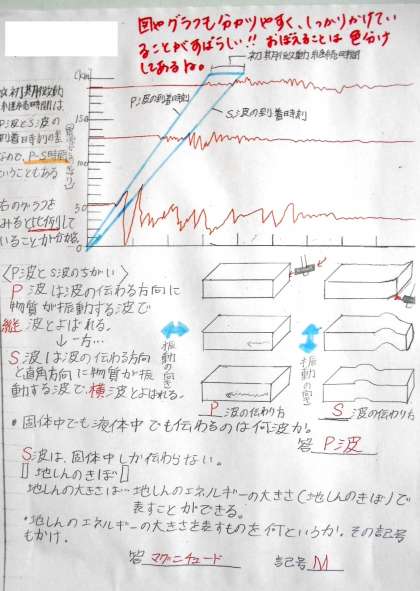 図やグラフも分かりやすく、しっかりかけてい
ることがすばらしい!! おぼえることは 色分け
してあるね。
初期微動継続時間
(km)
200
150
100
50
0
P波の到着時刻
S波の到着時刻
初期微動
継続時間は
P波とS波の
到着時刻の差
なので、P-S時間
ということもある
右のグラフを
みると比例して
いることが分かる。
〈P波とS波のちがい〉
P波は波の伝わる方向に
物質が振動する波で
縦波とよばれる。
↓一方…
S波は波の伝わる方向
と直角方向に物質が振
動する波で、横波とよばれる。
振動の向き
振動の向き
P波の伝わり方
S波の伝わり方
・固体中でも液体中でも伝わるのは何波か。
答 P波
S波は、固体中しか伝わらない。
〚地しんのきぼ〛
地しんの大きさは…地しんのエネルギーの大きさ(地しんのきぼ)で
表すことができる。
・地しんのエネルギーの大きさを表すものを何というか。その記号
もかけ。
答 マグニチュード 記号 M